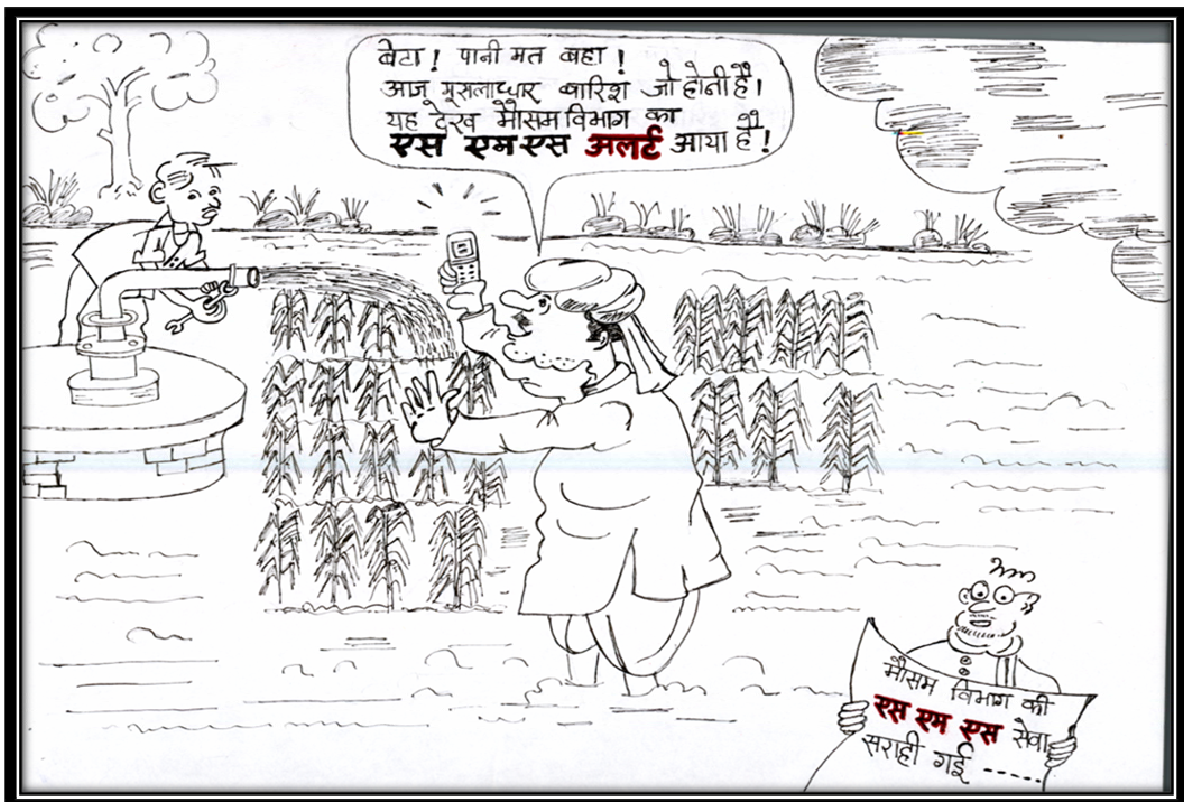 बेटा! पानी मत बहा!
आज मूसलाधार बारिश जो होनी है।
यह देख मौसम विभाग का
एस एम एस अलर्ट आया है!
मौसम विभाग की
एस एम एस सेवा
सराही गई -----